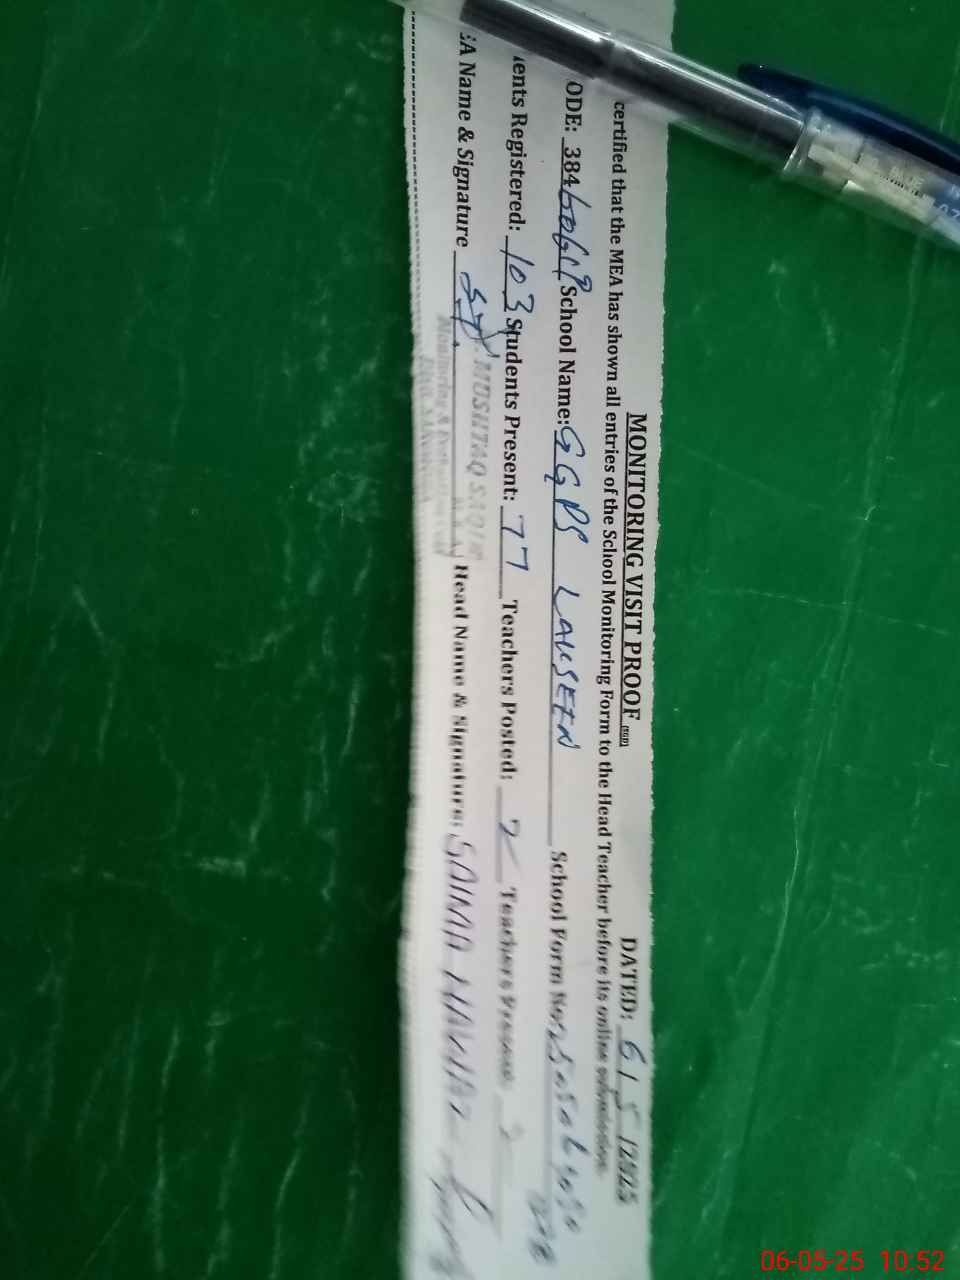 MONITORING VISIT PROOF DATED: 6 / 5 /2025
certified that the MEA has shown all entries of the School Monitoring Form to the Head Teacher before its online
ODE: 38460619 School Name: GGPS LAKSEEN School Form No:
ents Registered: 103 Students Present: 77 Teachers Posted: 2 Teachers Present: 2
EA Name & Signature MUSHTAQ SADIQ Head Name & Signature: SAIMA
Monitoring &
06-05-25 10:52